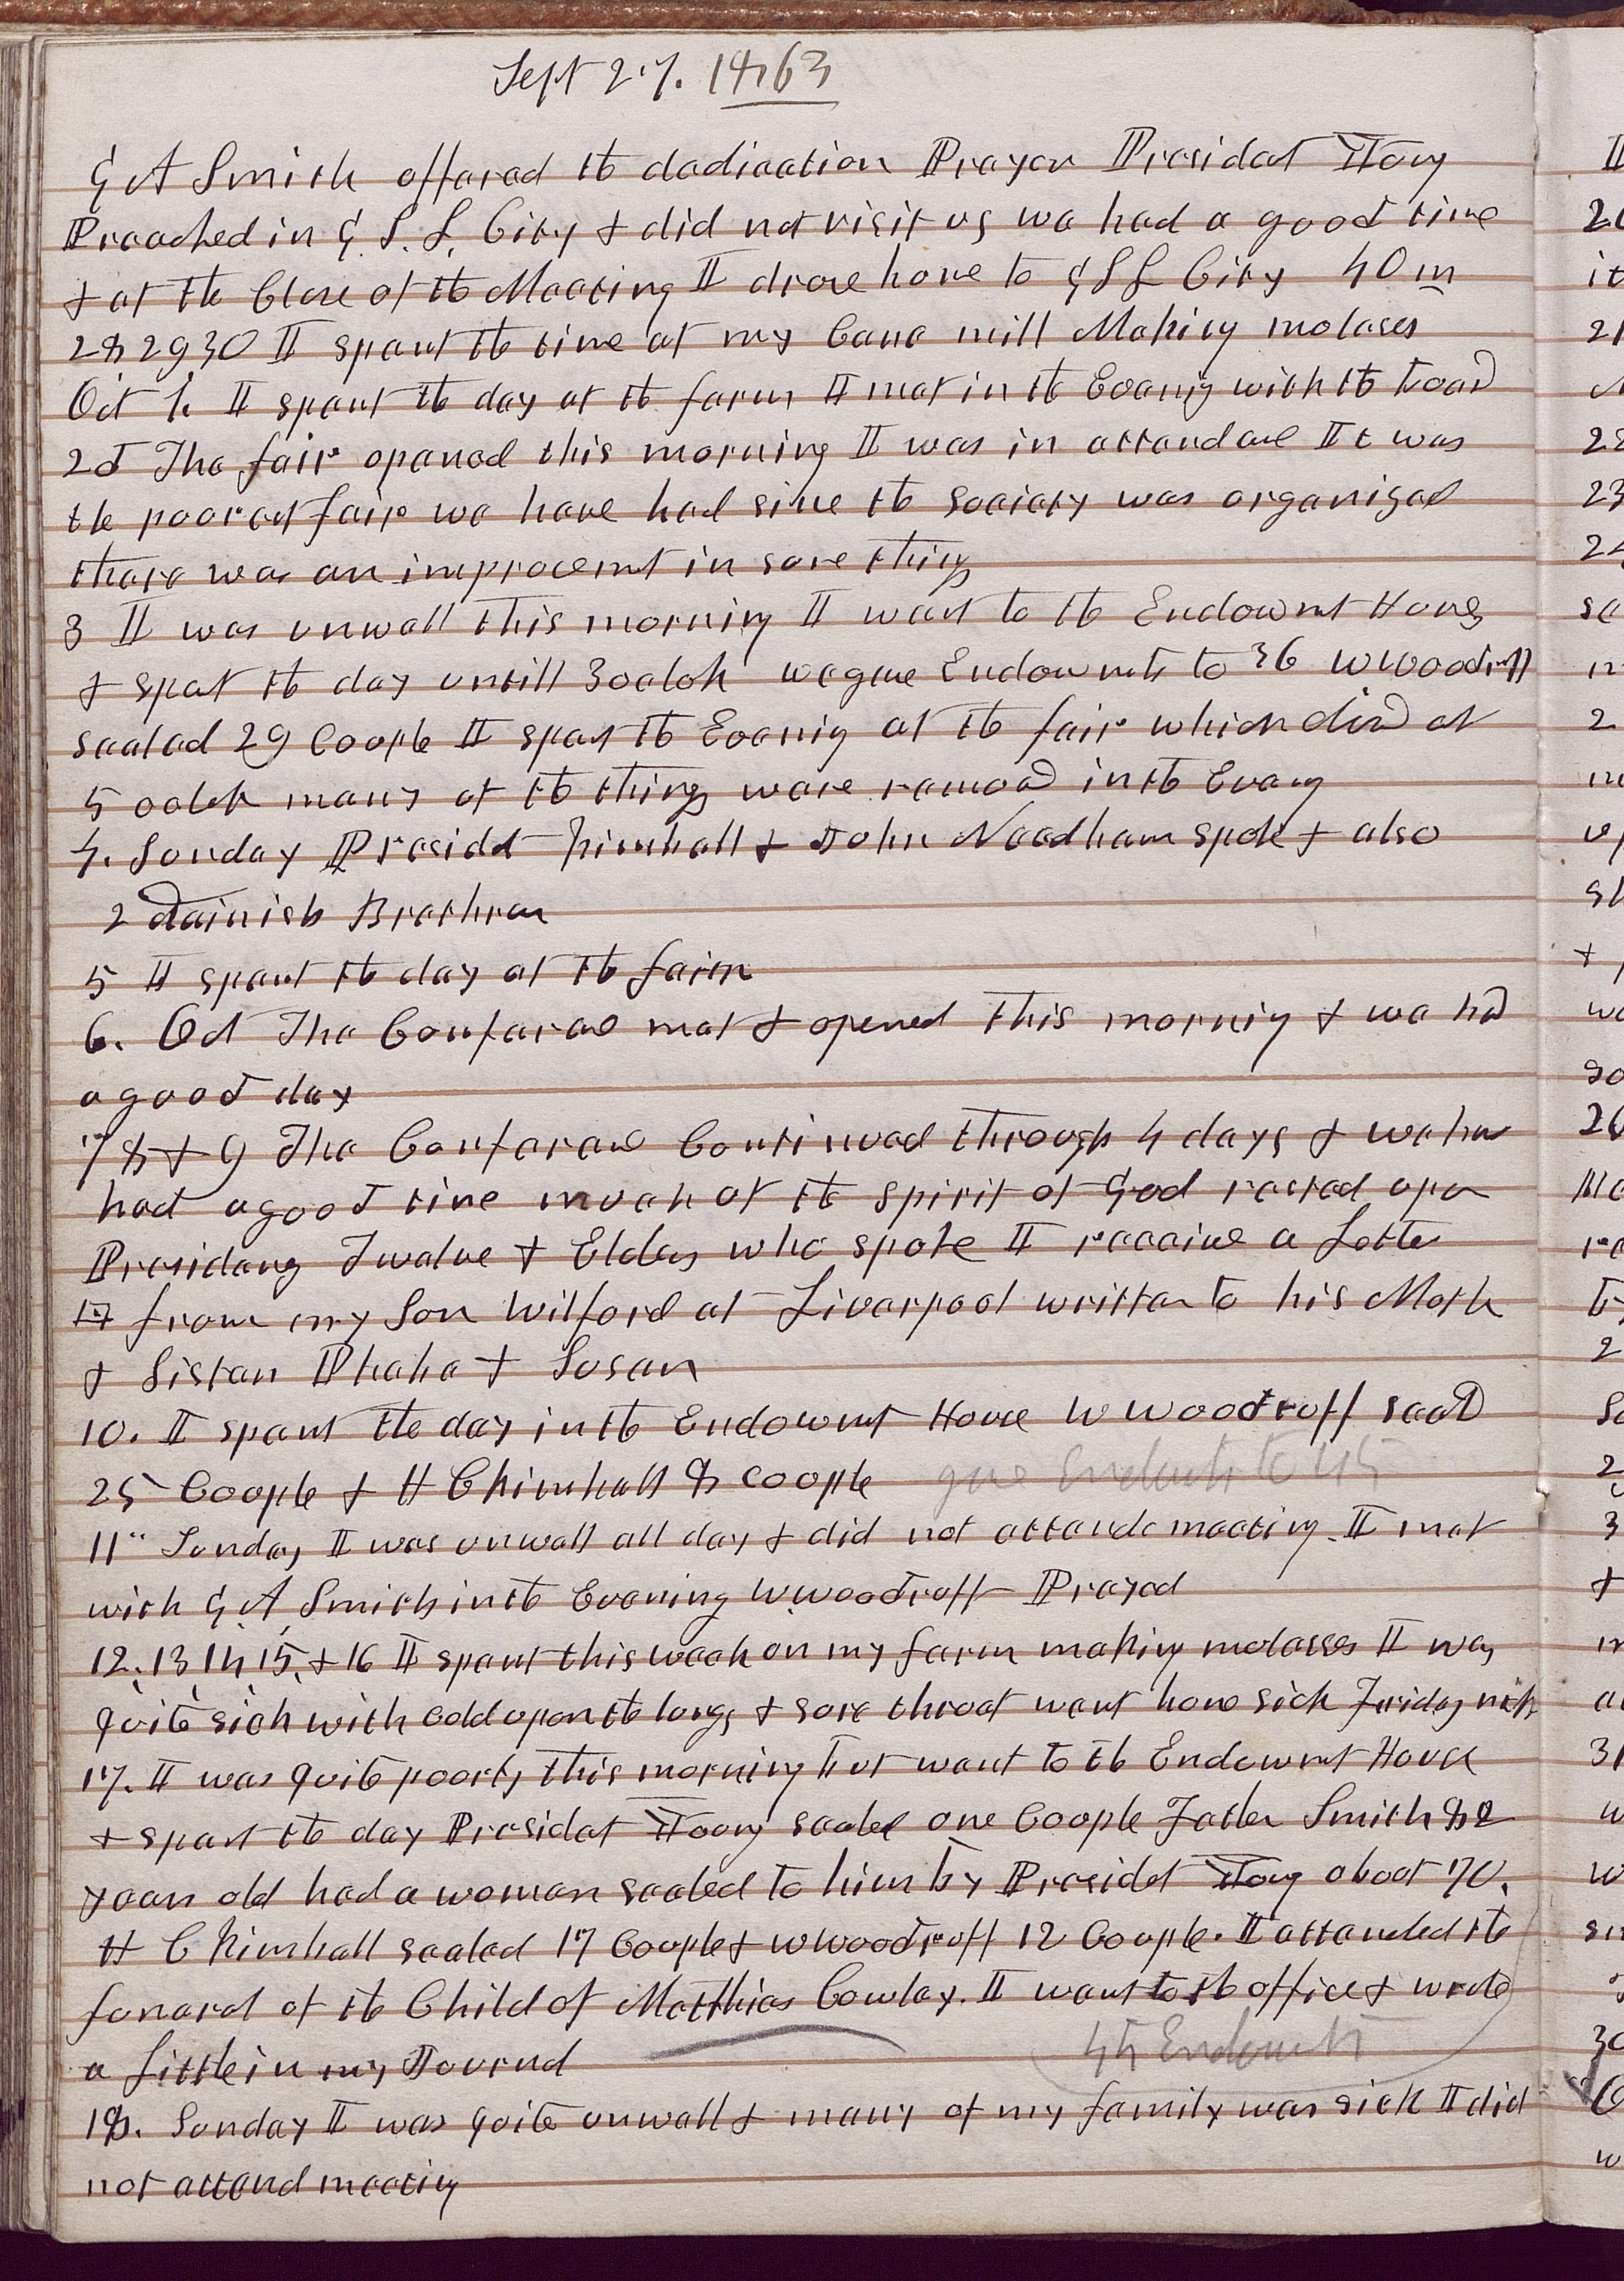 Sept 27. 1863
G A Smith offered the dedication Prayer President Young
Preached in G. S. L. City & did not visit us we had a good time
& at the Close of the Meeting I drove home to G S L City 40 m
28 29 30 I spent the time at my Cane mill Making molases
Oct 1. I spent the day at the farm I met in the Evening with the board
2d The fair opened this morning I was in attendance It was
the poorest fair we have had since the Society was organized
there was an improvemt in some things
3 I was unwell this morning I went to the Endowmt House
& spent the day untill 3 oclok we gave Endowmts to 36 W Woodruff
sealed 29 Couple I spent the Evenig at the fair which closd at
5 oclok many of the things were removd in the Eveng
4. Sunday Presidet Kimball & John Needham spoke & also
2 Dainish Brethren
5 I spent the day at the farm
6. Oct The Conferene met & opened this mornig & we had
a good day
7 8 & 9 The Conferene Continued through 4 days & we have
had a good time much of the spirit of God rested upon
Presidency Twelve & Elders who spoke I receive a Letter
from my Son Wilford at Liverpool written to his Moth
& Sisters Phebe & Susan
10. I spent the day in the Endowmt House W Woodruff seald
25 Couple & H C Kimball 8 couple gave Endowmts to 45
11" Sunday I was unwell all day & did not attende meeting. I met
with G A Smith in the Evening W. Woodruff Prayed
12. 13 14 15. & 16 I spent this week on my farm making molasses I was
quite sick with cold upon the lungs & sore throat went home sick Friday nigh
17. I was quite poorly this morning but went to the Endowmt House
& spent the day Presidet Young sealed one Couple Father Smith 82
years old had a woman sealed to him by Presidet Young about 70.
H C Kimball sealed 17 Couple & W Woodruff 12 Couple. I attended the
funeral of the Child of Matthias Cowley. I went to the office & wrote
a little in my Journal 45 Endowmts
18. Sunday I was quite unwell & many of my family was sick I did
not attend meetig